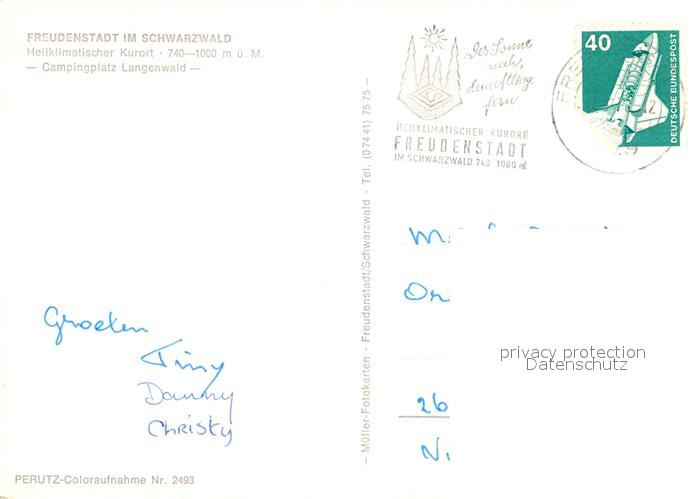 FREUDENSTADT IM SCHWARZWALD
Heilklimatischer Kurort · 740—1000 m ü. M.
— Campingplatz Langenwald —
Der Sonne
nah,
dem Alltag
fern
HEILKLIMATISCHER KURORT
FREUDENSTADT
IM SCHWARZWALD 740 1000 m
FRE
12
40
DEUTSCHE BUNDESPOST
— Müller-Fotokarten · Freudenstadt/Schwarzwald · Tel. (07441) 7575 —
Groeten
Tiny
Danny
Christy
M.
On
26
N.
privacy protection
Datenschutz
PERUTZ-Coloraufnahme Nr. 2493